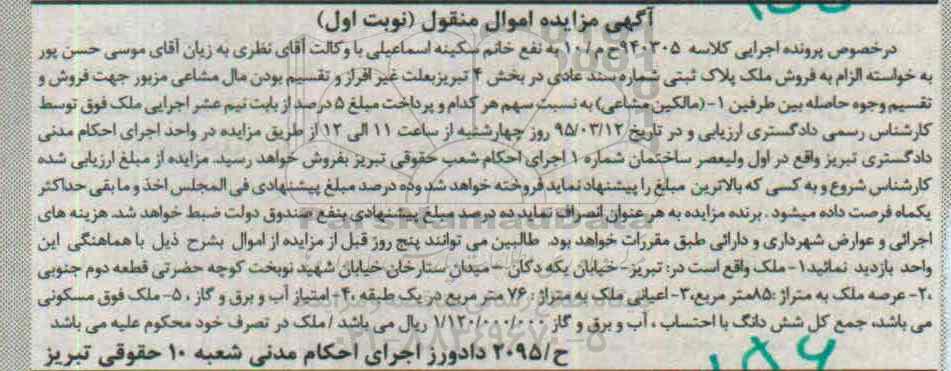 آگهی مزایده اموال منقول (نوبت اول)
درخصوص پرونده اجرایی کلاسه ۹۴۰۳۰۵ح م /۱۰ به نفع خانم سکینه اسماعیلی با وکالت آقای نظری به زیان آقای موسی حسن پور
به خواسته الزام به فروش ملک پلاک ثبتی شماره سند عادی در بخش ۴ تبریزبعلت غیر افراز و تقسیم بودن مال مشاعی مزبور جهت فروش و
تقسیم وجوه حاصله بین طرفین ۱- (مالکین مشاعی) به نسبت سهم هر کدام و پرداخت مبلغ ۵ درصد از بابت نیم عشر اجرایی ملک فوق توسط
کارشناس رسمی دادگستری ارزیابی و در تاریخ ۹۵/۰۳/۱۲ روز چهارشنبه از ساعت ۱۱ الی ۱۲ از طریق مزایده در واحد اجرای احکام مدنی
دادگستری تبریز واقع در اول ولیعصر ساختمان شماره ۱ اجرای احکام شعب حقوقی تبریز بفروش خواهد رسید. مزایده از مبلغ ارزیابی شده
کارشناس شروع و به کسی که بالاترین مبلغ را پیشنهاد نماید فروخته خواهد شد وده درصد مبلغ پیشنهادی فی المجلس اخذ و ما بقی حداکثر
یکماه فرصت داده میشود . برنده مزایده به هر عنوان انصراف نماید ده درصد مبلغ پیشنهادی بنفع صندوق دولت ضبط خواهد شد. هزینه های
اجرائی و عوارض شهرداری و دارائی طبق مقررات خواهد بود. طالبین می توانند پنج روز قبل از مزایده از اموال بشرح ذیل با هماهنگی این
واحد بازدید نمائید۱- ملک واقع است در: تبریز- خیابان یکه دکان – میدان ستارخان خیابان شهید نوبخت کوچه حضرتی قطعه دوم جنوبی
،۲- عرصه ملک به متراژ :۸۵متر مربع،۳- اعیانی ملک به متراژ : ۷۶ متر مربع در یک طبقه ،۴- امتیاز آب و برق و گاز ، ۵- ملک فوق مسکونی
می باشد، جمع کل شش دانگ با احتساب ، آب و برق و گاز ۱/۱۲۰/۰۰۰/۰۰۰ ریال می باشد / ملک در تصرف خود محکوم علیه می باشد
ح/۲۰۹۵ دادورز اجرای احکام مدنی شعبه ۱۰ حقوقی تبریز
ParsNamadData